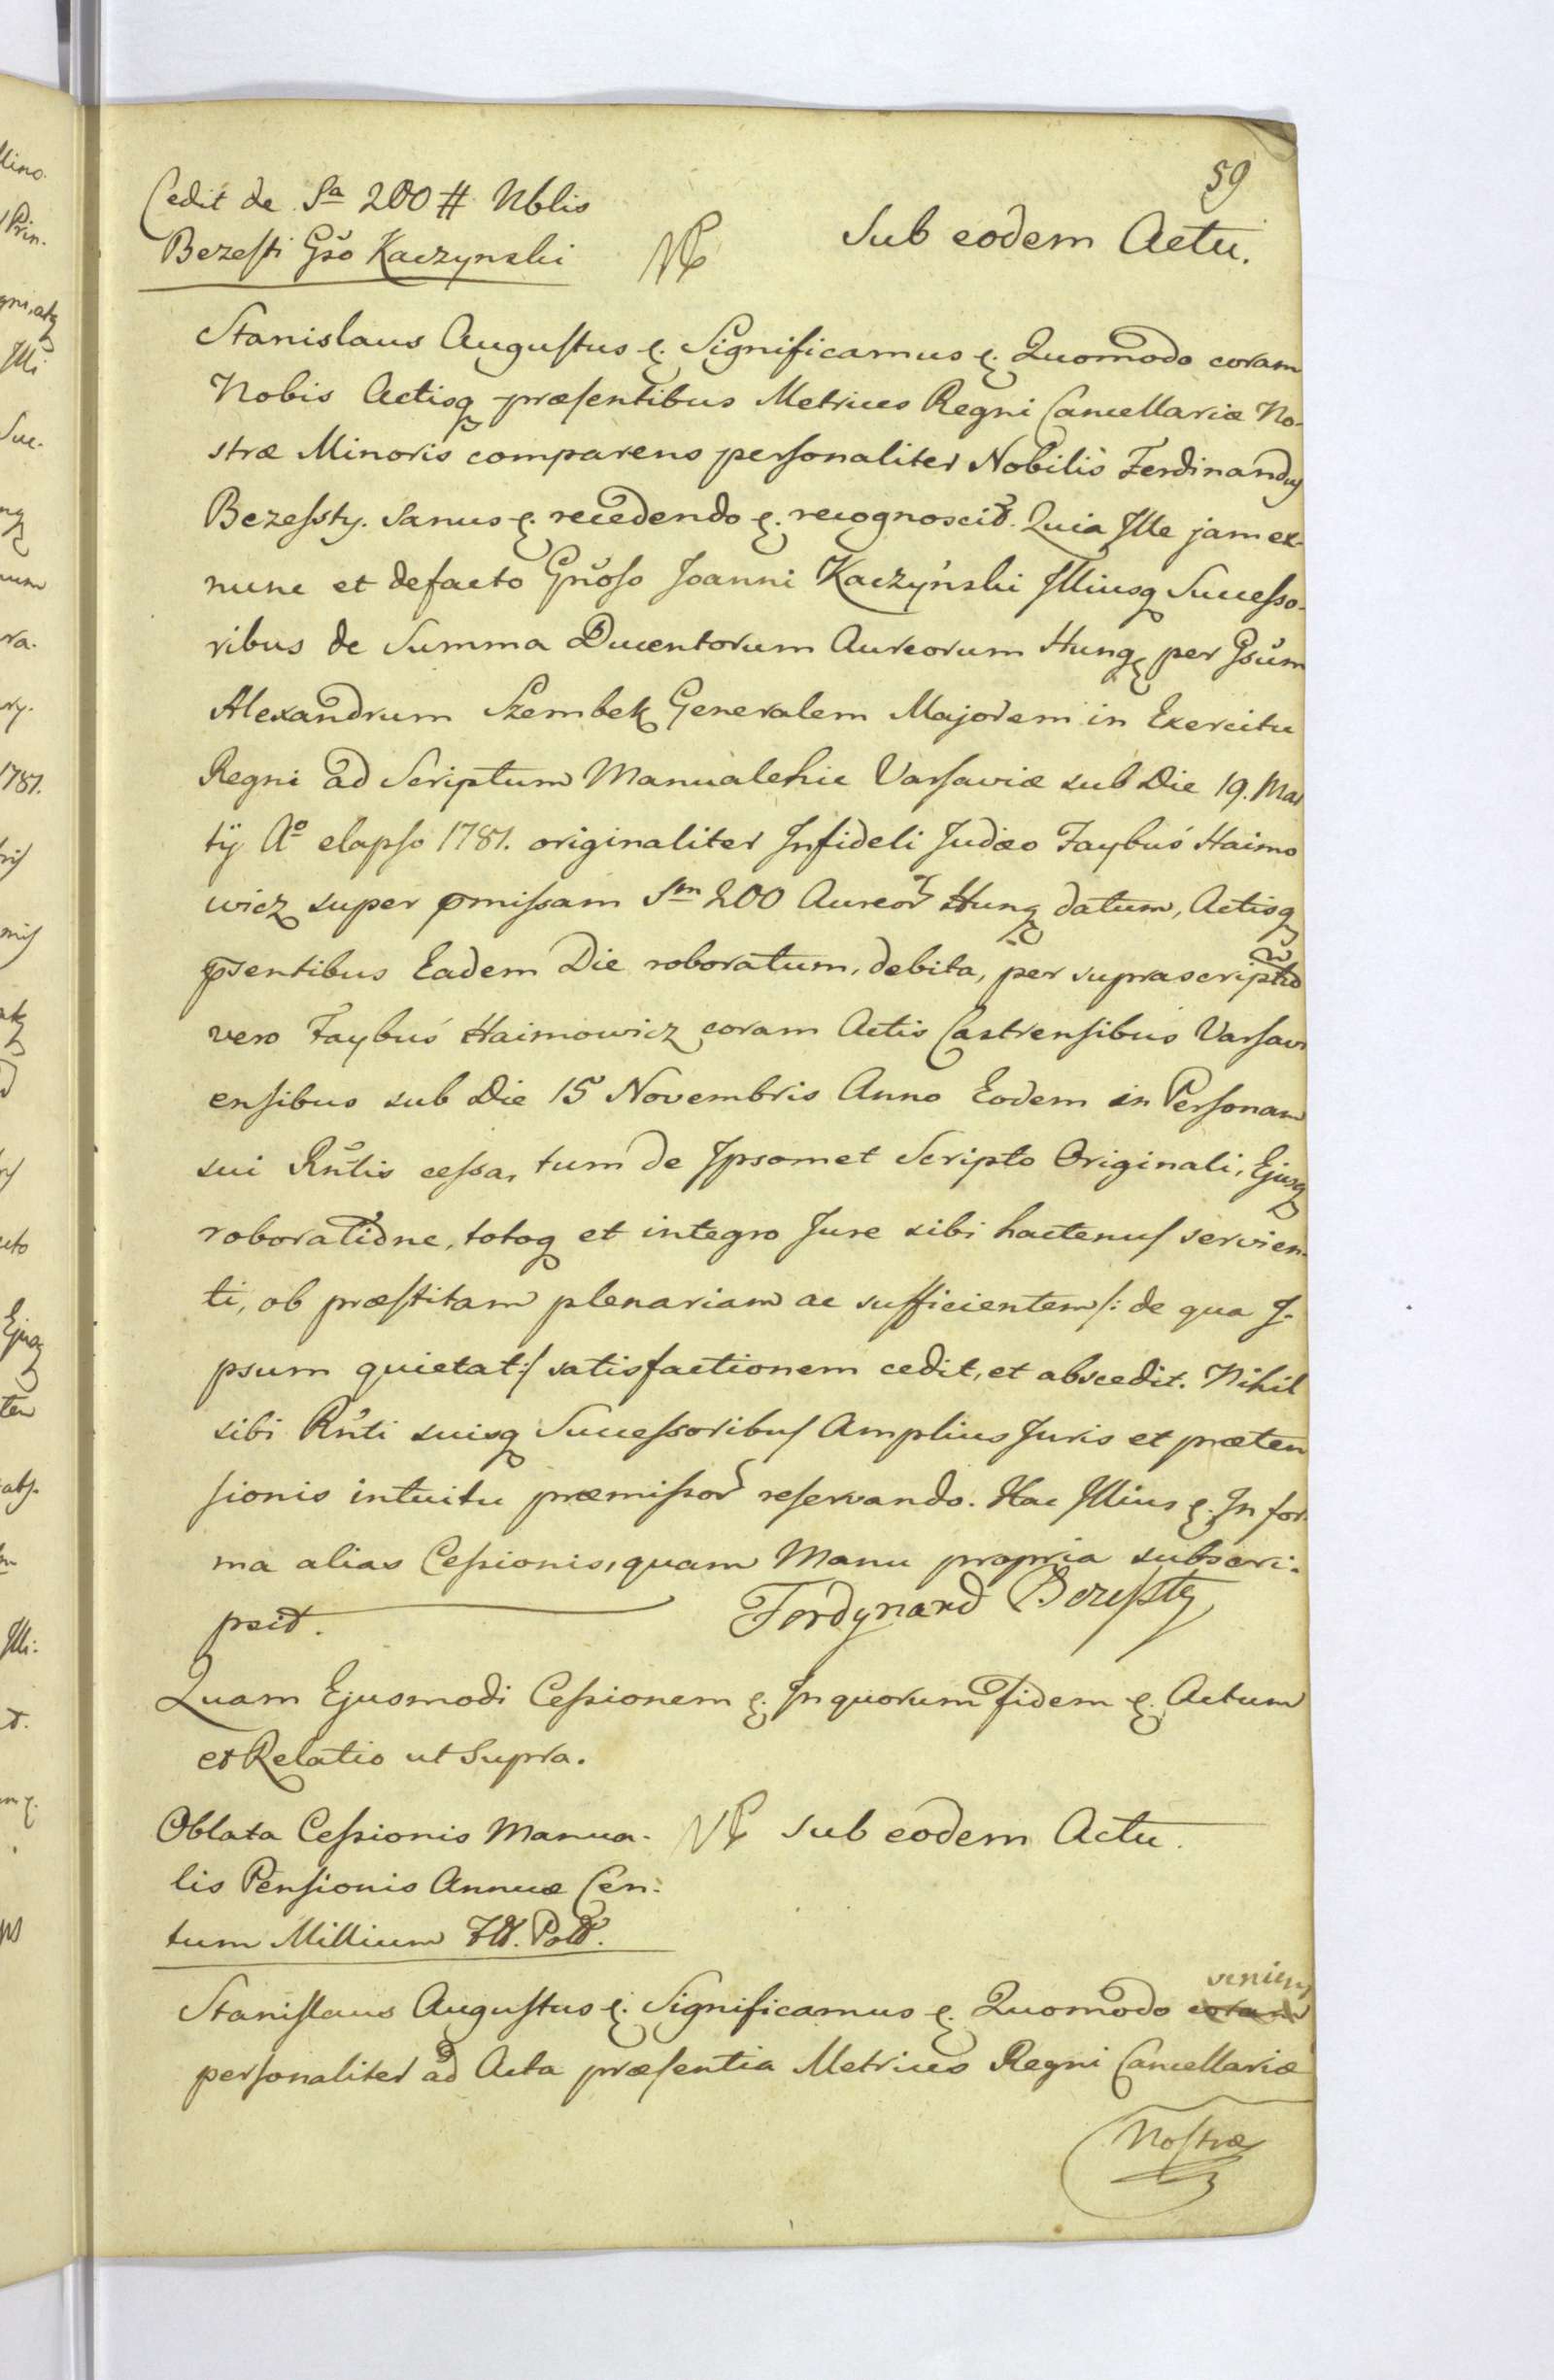 59
Cedit de Sa 200 # Nblis
Bezesti Gso Kaczynski
Sub eodem Actu.
Stanislaus Augustus &. Significamus &. Quomodo coram
Nobis Actisq præsentibus Metrices Regni Cancellariæ No-
stræ Minoris comparens personaliter Nobilis Ferdinandus
Bezessty. Sanus &. recedendo &. recognoscit. Quia Ille jam ex-
nunc et defacto Gnoso Joanni Kaczyński Illiusq Successo-
ribus de Summa Ducentorum Aureorum Hung. per Gsum
Alexandrum Szembek Generalem Majorem in Exercitu
Regni ad Scriptum Manuale hic Varsaviæ sub Die 19. Mar
tij Ao elapso 1781. originaliter Infideli Judæo Faybuś Haimo
wicz super pmissam Sm 200 Aureor Hung datum, Actisq
psentibus Eadem Die roboratum, debita, per suprascriptu
vero Faybuś Haimowicz coram Actis Castrensibus Varsavi
ensibus sub Die 15 Novembris Anno Eodem in Personam
sui Rntis cessa, tum de Ipsomet Scripto Originali, Ejusq
roboratione, totoq et integro Jure sibi hactenus servien
ti, ob præstitam plenariam ac sufficientem /: de qua I-
psum quietat :/ satisfactionem cedit, et abscedit. Nihil
sibi Rnti suisq Successoribus Amplius Juris et præten
sionis intuitu præmissor reservando. Hac Illius &. In for
ma alias Cessionis, quam Manu propria subscri-
psit. Ferdynand Bezessty
Quam Ejusmodi Cessionem &. In quorum fidem &. Actum
et Relatio ut Supra.
Oblata Cessionis Manua-
lis Pensionis Annuæ Cen-
tum Millium Fll. Poll.
Sub eodem Actu.
Stanislaus Augustus &. Significamus &. Quomodo coram veniens
personaliter ad Acta præsentia Metrices Regni Cancellariæ
Nostræ